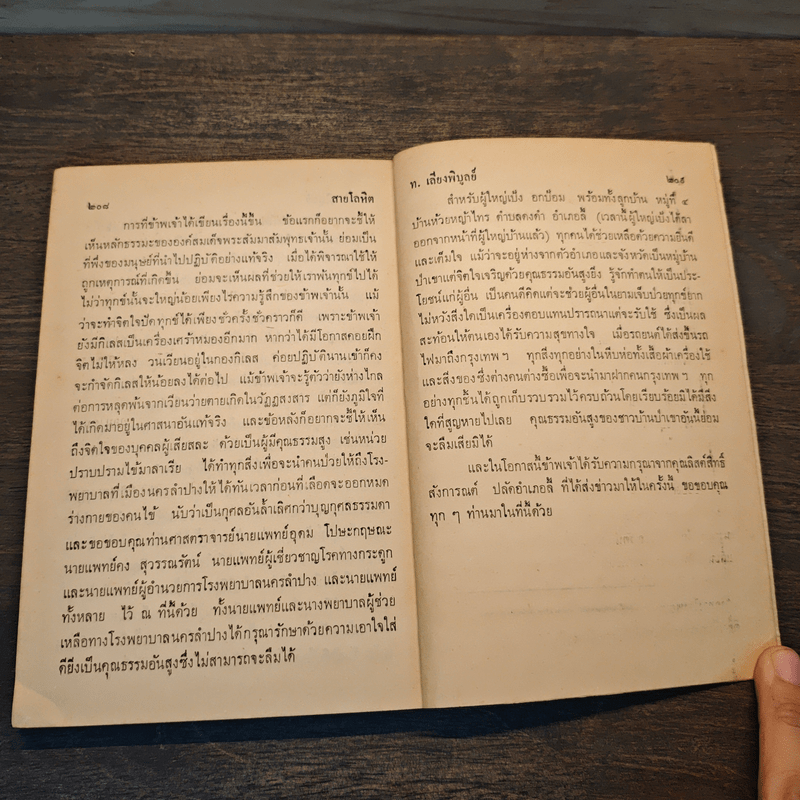 ๒๐๘ สายโลหิต
การที่ข้าพเจ้าได้เขียนเรื่องนี้ขึ้น ข้อแรกก็อยากจะชี้ให้
เห็นหลักธรรมะขององค์สมเด็จพระสัมมาสัมพุทธเจ้านั้น ย่อมเป็น
ที่พึ่งของมนุษย์ที่นำไปปฏิบัติอย่างแท้จริง เมื่อได้พิจารณาใช้ให้
ถูกเหตุการณ์ที่เกิดขึ้น ย่อมจะเห็นผลที่ช่วยให้เราพ้นทุกข์ไปได้
ไม่ว่าทุกข์นั้นจะใหญ่น้อยเพียงไรความรู้สึกของข้าพเจ้านั้น แม้
ว่าจะทำจิตใจปัดทุกข์ได้เพียงชั่วครั้งชั่วคราวก็ดี เพราะข้าพเจ้า
ยังมีกิเลสเป็นเครื่องเศร้าหมองอีกมาก หากว่าได้มีโอกาสคอยฝึก
จิตไม่ให้หลง วนเวียนอยู่ในกองกิเลส ค่อยปฏิบัตินานเข้าก็คง
จะกำจัดกิเลสให้น้อยลงได้ต่อไป แม้ข้าพเจ้าจะรู้ตัวว่ายังห่างไกล
ต่อการหลุดพ้นจากเวียนว่ายตายเกิดในวัฏฏสงสาร แต่ก็ยังภูมิใจที่
ได้เกิดมาอยู่ในศาสนาอันแท้จริง และข้อหลังก็อยากจะชี้ให้เห็น
ถึงจิตใจของบุคคลผู้เสียสละ ด้วยเป็นผู้มีคุณธรรมสูง เช่นหน่วย
ปราบปรามไข้มาลาเรีย ได้ทำทุกสิ่งเพื่อจะนำคนป่วยให้ถึงโรง-
พยาบาลที่เมืองนครลำปางให้ได้ทันเวลาก่อนที่เลือดจะออกหมด
ร่างกายของคนไข้ นับว่าเป็นกุศลอันล้ำเลิศกว่าบุญกุศลธรรมดา
และขอขอบคุณท่านศาสตราจารย์นายแพทย์อุดม โปษะกฤษณะ
นายแพทย์คง สุวรรณรัตน์ นายแพทย์ผู้เชี่ยวชาญโรคทางกระดูก
และนายแพทย์ผู้อำนวยการโรงพยาบาลนครลำปาง และนายแพทย์
ทั้งหลาย ไว้ ณ ที่นี้ด้วย ทั้งนายแพทย์และนางพยาบาลผู้ช่วย
เหลือทางโรงพยาบาลนครลำปางได้กรุณารักษาด้วยความเอาใจใส่
ดียิ่งเป็นคุณธรรมอันสูงซึ่งไม่สามารถจะลืมได้
ท. เลียงพิบูลย์ ๒๐๙
สำหรับผู้ใหญ่เบ็ง อกบ็อม พร้อมทั้งลูกบ้าน หมู่ที่ ๔
บ้านห้วยหญ้าไทร ตำบลดงดำ อำเภอลี้ (เวลานี้ผู้ใหญ่เบ็งได้ลา
ออกจากหน้าที่ผู้ใหญ่บ้านแล้ว) ทุกคนได้ช่วยเหลือด้วยความยินดี
และเต็มใจ แม้ว่าจะอยู่ห่างจากตัวอำเภอและจังหวัดเป็นหมู่บ้าน
ป่าเขาแต่จิตใจเจริญด้วยคุณธรรมอันสูงยิ่ง รู้จักทำตนให้เป็นประ-
โยชน์แก่ผู้อื่น เป็นคนที่คิดแต่จะช่วยผู้อื่นในยามเจ็บป่วยทุกข์ยาก
ไม่หวังสิ่งใดเป็นเครื่องตอบแทนปรารถนาแต่จะรับใช้ ซึ่งเป็นผล
สะท้อนให้ตนเองได้รับความสุขทางใจ เมื่อรถยนต์ได้ส่งขึ้นรถ
ไฟมาถึงกรุงเทพฯ ทุกสิ่งทุกอย่างในหีบห่อทั้งเสื้อผ้าเครื่องใช้
และสิ่งของซึ่งต่างคนต่างซื้อเพื่อจะนำมาฝากคนกรุงเทพฯ ทุก
อย่างทุกชิ้นได้ถูกเก็บรวบรวมไว้ครบถ้วนโดยเรียบร้อยมิได้มีสิ่ง
ใดที่สูญหายไปเลย คุณธรรมอันสูงของชาวบ้านป่าเขาอันนี้ย่อม
จะลืมเสียมิได้
และในโอกาสนี้ข้าพเจ้าได้รับความกรุณาจากคุณลิตต์สิทธิ์
สังการณต์ ปลัดอำเภอลี้ ที่ได้ส่งข่าวมาให้ในครั้งนี้ ขอขอบคุณ
ทุก ๆ ท่านมาในที่นี้ด้วย